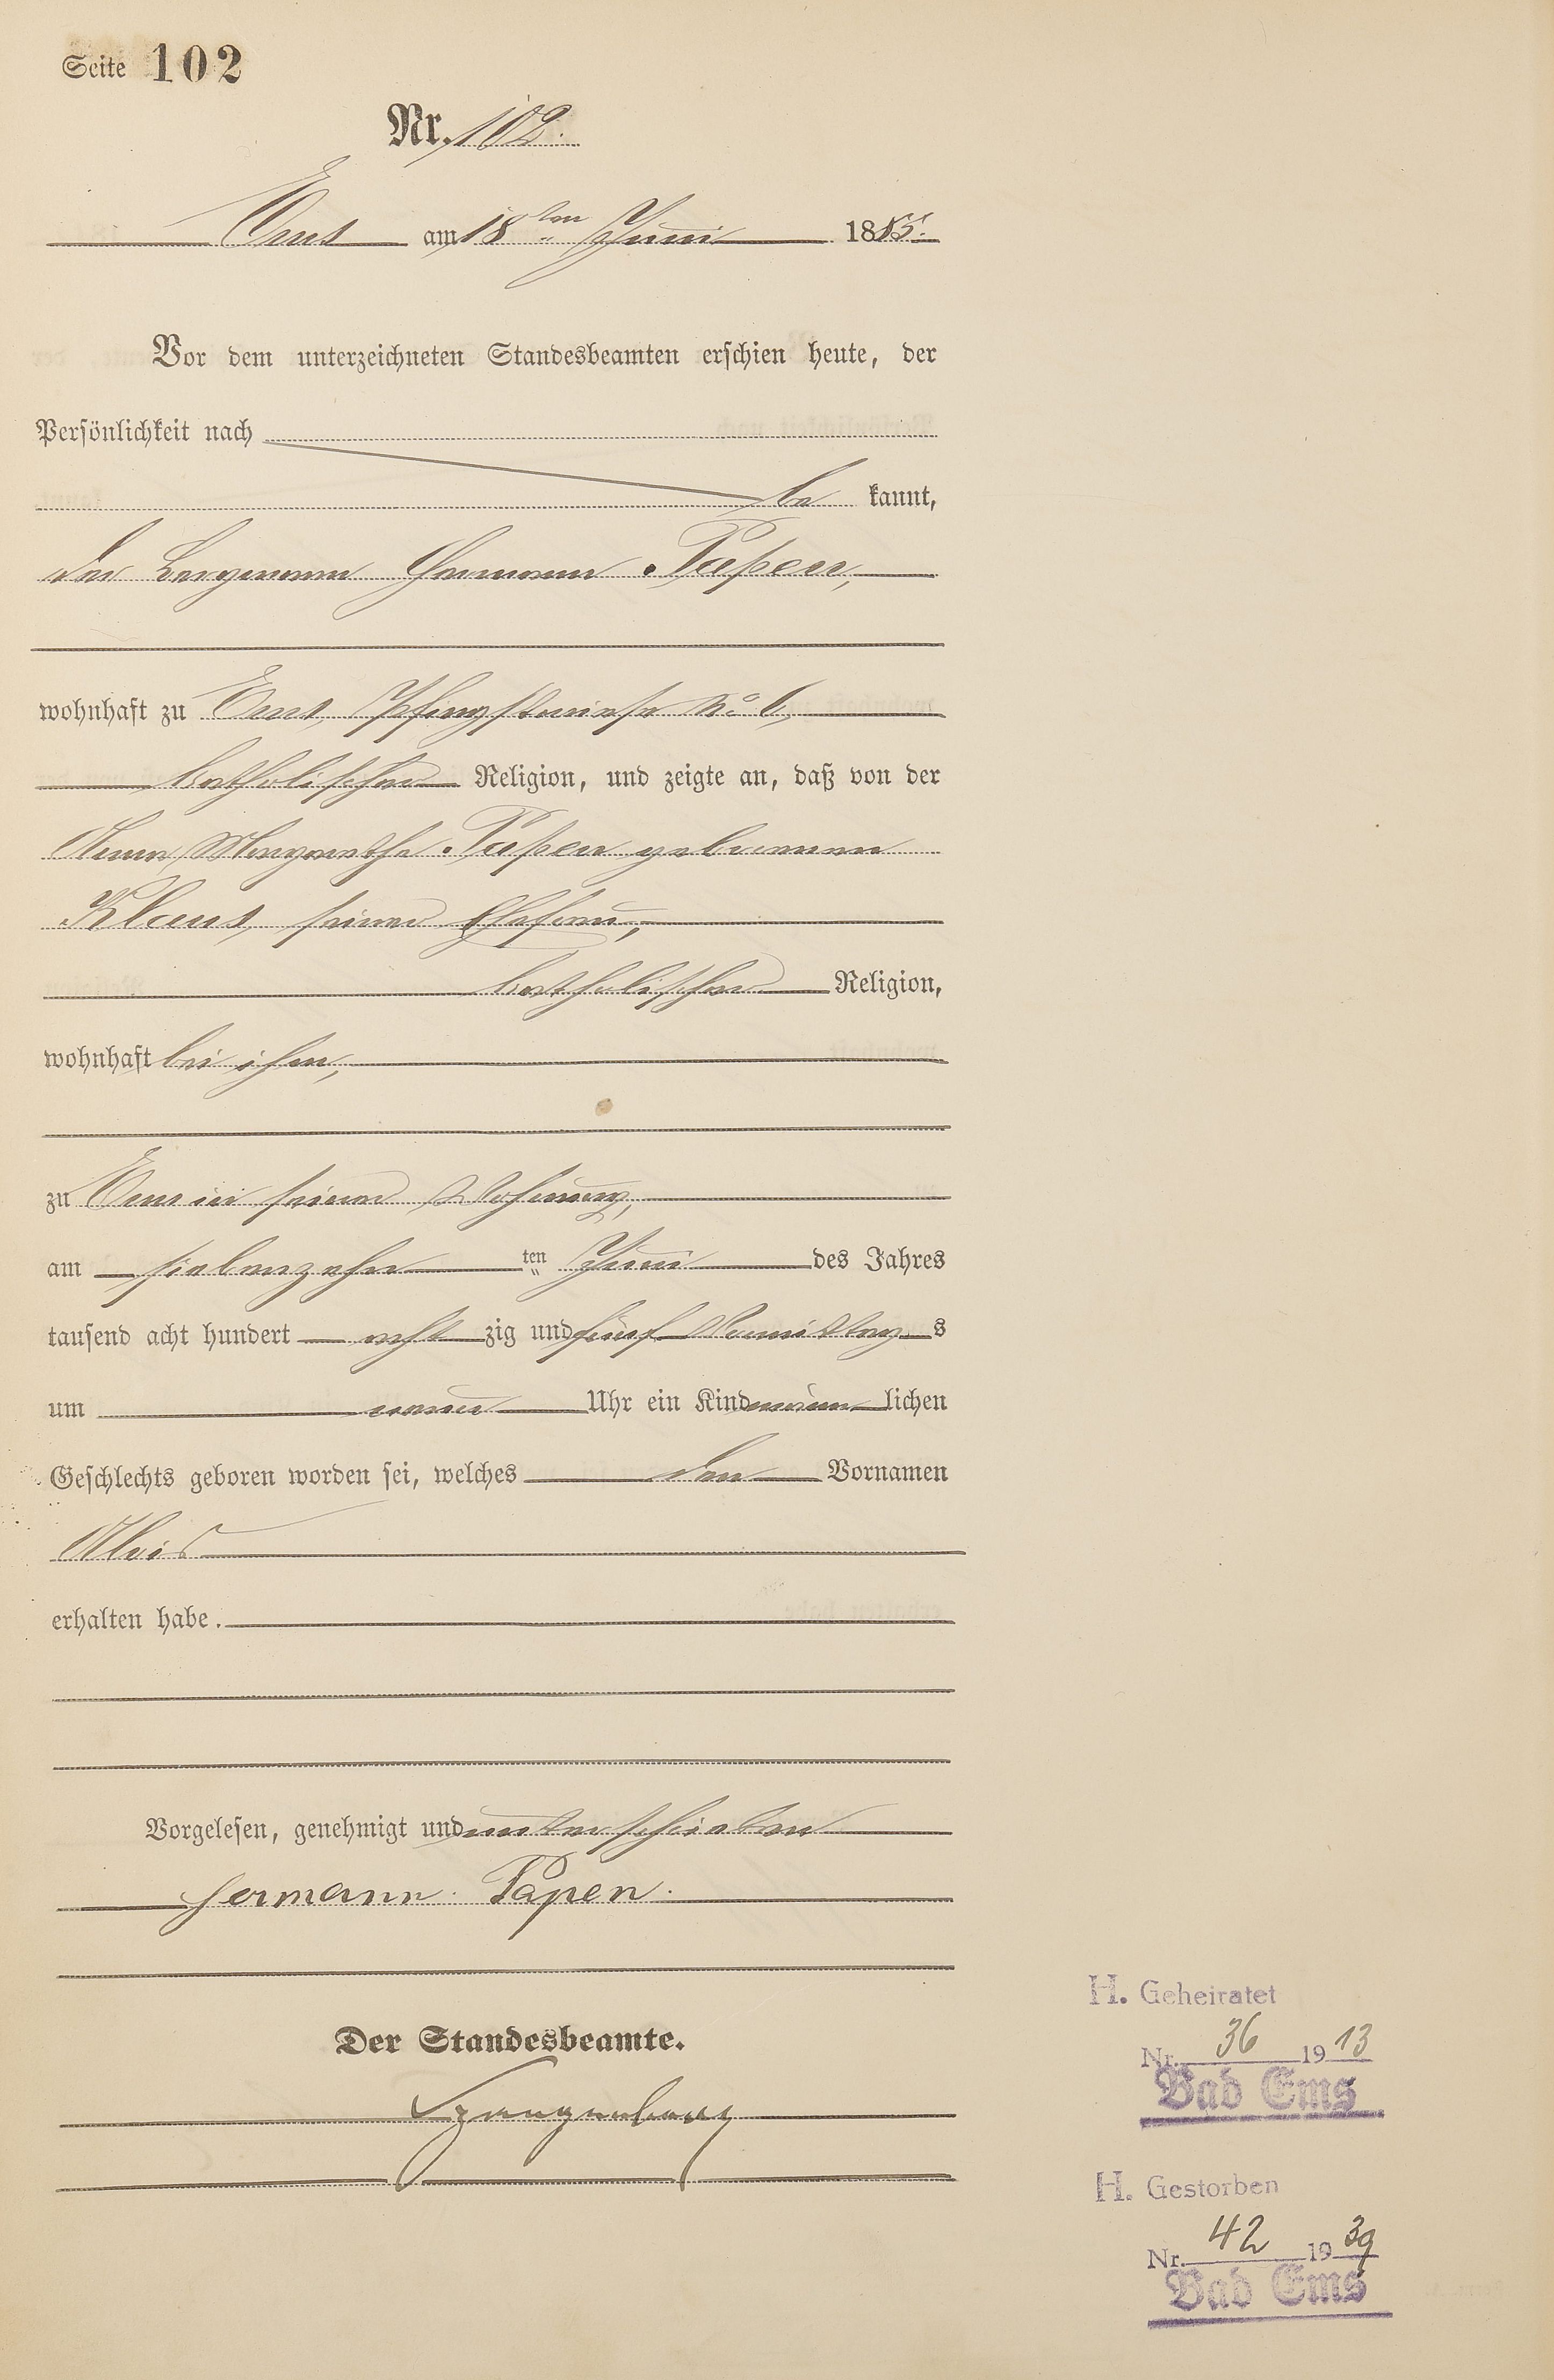 Seite 102
Nr. 102.
Ems am 18ten Juni 1885.
Vor dem unterzeichneten Standesbeamten erschien heute, der
Persönlichkeit nach
be kannt,
der Bergmann Hermann Papen,
wohnhaft zu Ems, Pfingstwiese No 6,
katholischer Religion, und zeigte an, daß von der
Anna Margaretha Papen geborenen
Klaus, seiner Ehefrau,
katholischer Religion,
wohnhaft bei ihm,
zu Ems in seiner Wohnung,
am siebenzehn ten Juni des Jahres
tausend acht hundert acht zig und fünf Vormittag s
um neun Uhr ein Kind männ lichen
Geschlechts geboren worden sei, welches den Vornamen
Alois
erhalten habe.
Vorgelesen, genehmigt und unterschrieben
Hermann Papen.
Der Standesbeamte.
Spangenberg
H. Geheiratet
Nr. 36 1913
Bad Ems
H. Gestorben
Nr. 42 1939
Bad Ems